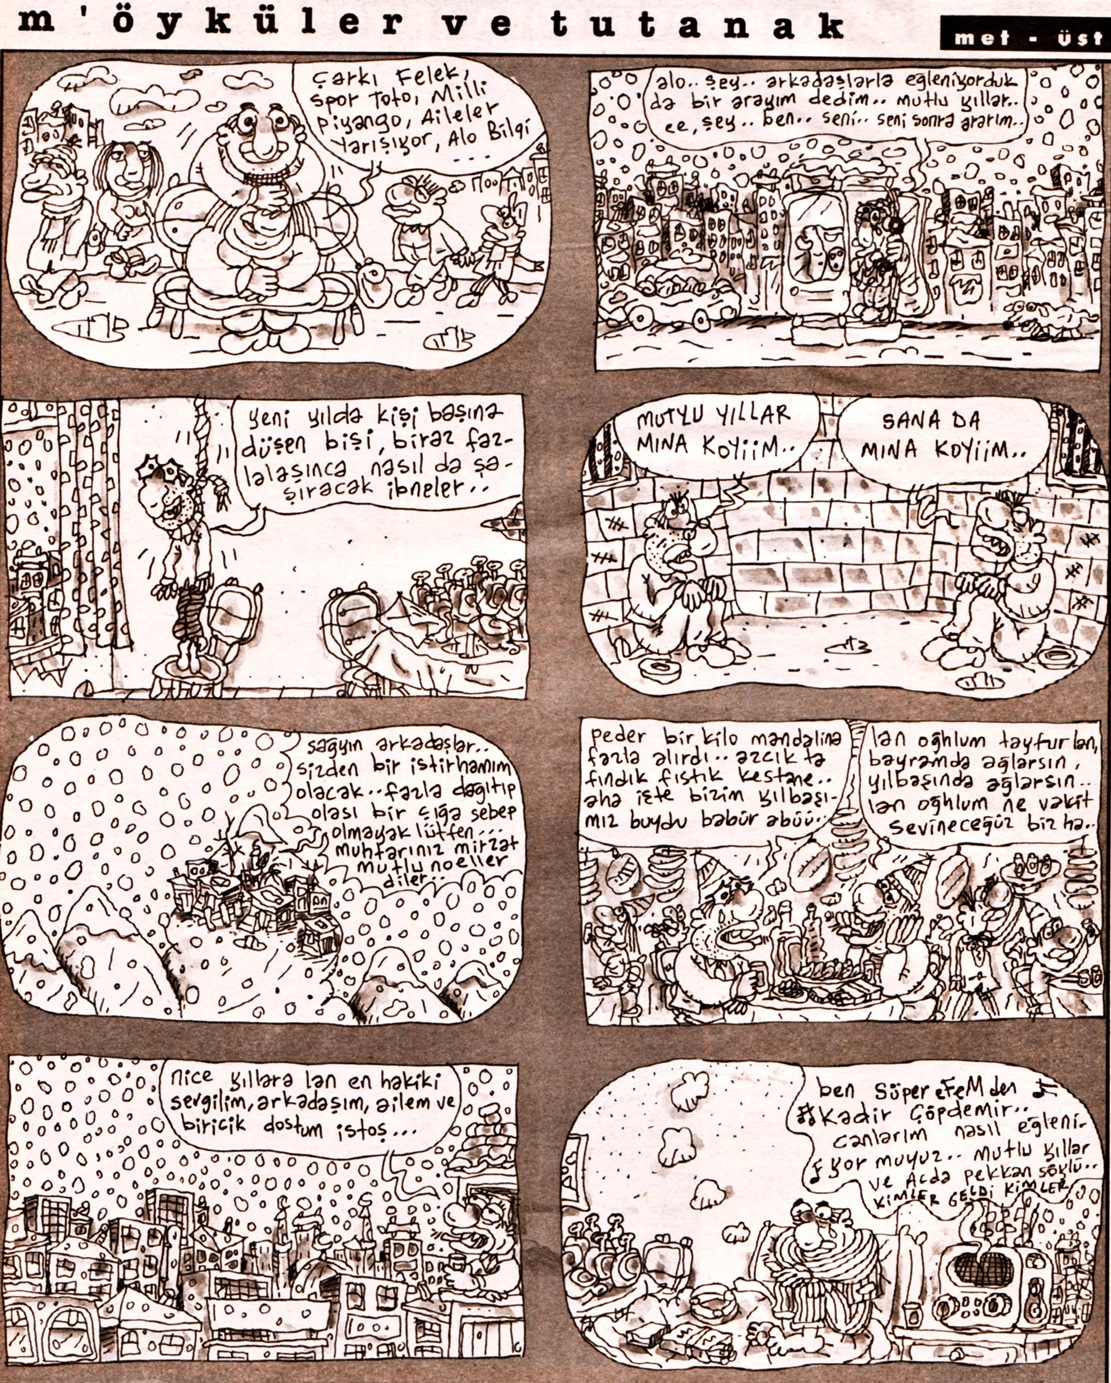 m'öyküler ve tutanak
met - üst
Çarkı Felek,
Spor Toto, Milli
Piyango, Aileler
Yarışıyor, Alo Bilgi
...
alo.. şey.. arkadaşlarla eğleniyorduk
da bir arayım dedim.. mutlu yıllar..
ee, şey.. ben.. seni.. seni sonra ararım..
yeni yılda kişi başına
düşen bişi, biraz faz-
lalaşınca, nasıl da şa-
şıracak ibneler..
MUTLU YILLAR
MINA KOYİİM..
SANA DA
MINA KOYİİM..
sağyın arkadaşlar..
sizden bir istirhamım
olacak.. fazla dağıtıp
olası bir çığa sebep
olmayak lütfen...
muhtarınız mirzat
mutlu noeller
diler..
peder bir kilo mandalina
fazla alırdı.. azcık ta
fındık fıstık kestane..
aha işte bizim yılbaşı-
mız buydu babür abüü..
lan oğhlum tayfur lan,
bayramda ağlarsın,
yılbaşında ağlarsın..
lan oğhlum ne vakit
sevineceğüz biz ha..
nice yıllara lan en hakiki
sevgilim, arkadaşım, ailem ve
biricik dostum istoş...
ben Süper eFeM den
Kadir Çöpdemir..
canlarım nasıl eğleni-
yor muyuz.. mutlu yıllar
ve Acda pekkan söylü..
KİMLER GELDİ KİMLER